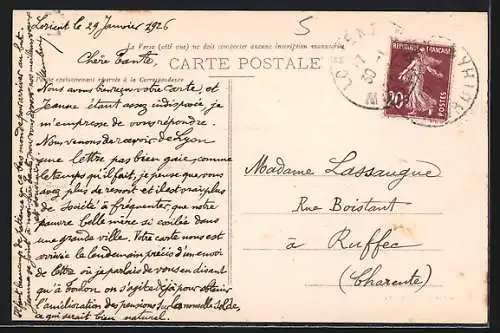 Lorient le 29 Janvier 1926
5
Le Verso (côté vue) ne doit comporter aucune inscription manuscrite
Chère Tante,
CARTE POSTALE
Partie exclusivement réservée à la Correspondance
Nous avons bien reçu votre carte, et
Jeanne étant assez indisposée, je
m'empresse de vous répondre.
Nous venons de recevoir de Lyon
une lettre pas bien gaie, comme
le temps qu'il fait, je pense que vous
avez plus de ressort et il est vrai plus
de Société à fréquenter, que notre
pauvre belle mère si isolée dans
une grande ville. Votre carte nous est
arrivée le lendemain précis d'un envoi
de lettre où je parlais de vous en disant
qu'à Toulon on s'agite déjà pour obtenir
l'amélioration des pensions sur les nouvelles soldes,
ce qui serait bien naturel.
RÉPUBLIQUE FRANÇAISE
20c
POSTES
LORIENT
MORBIHAN
Madame Lassaugue
Rue Boistant
à Ruffec
(Charente)